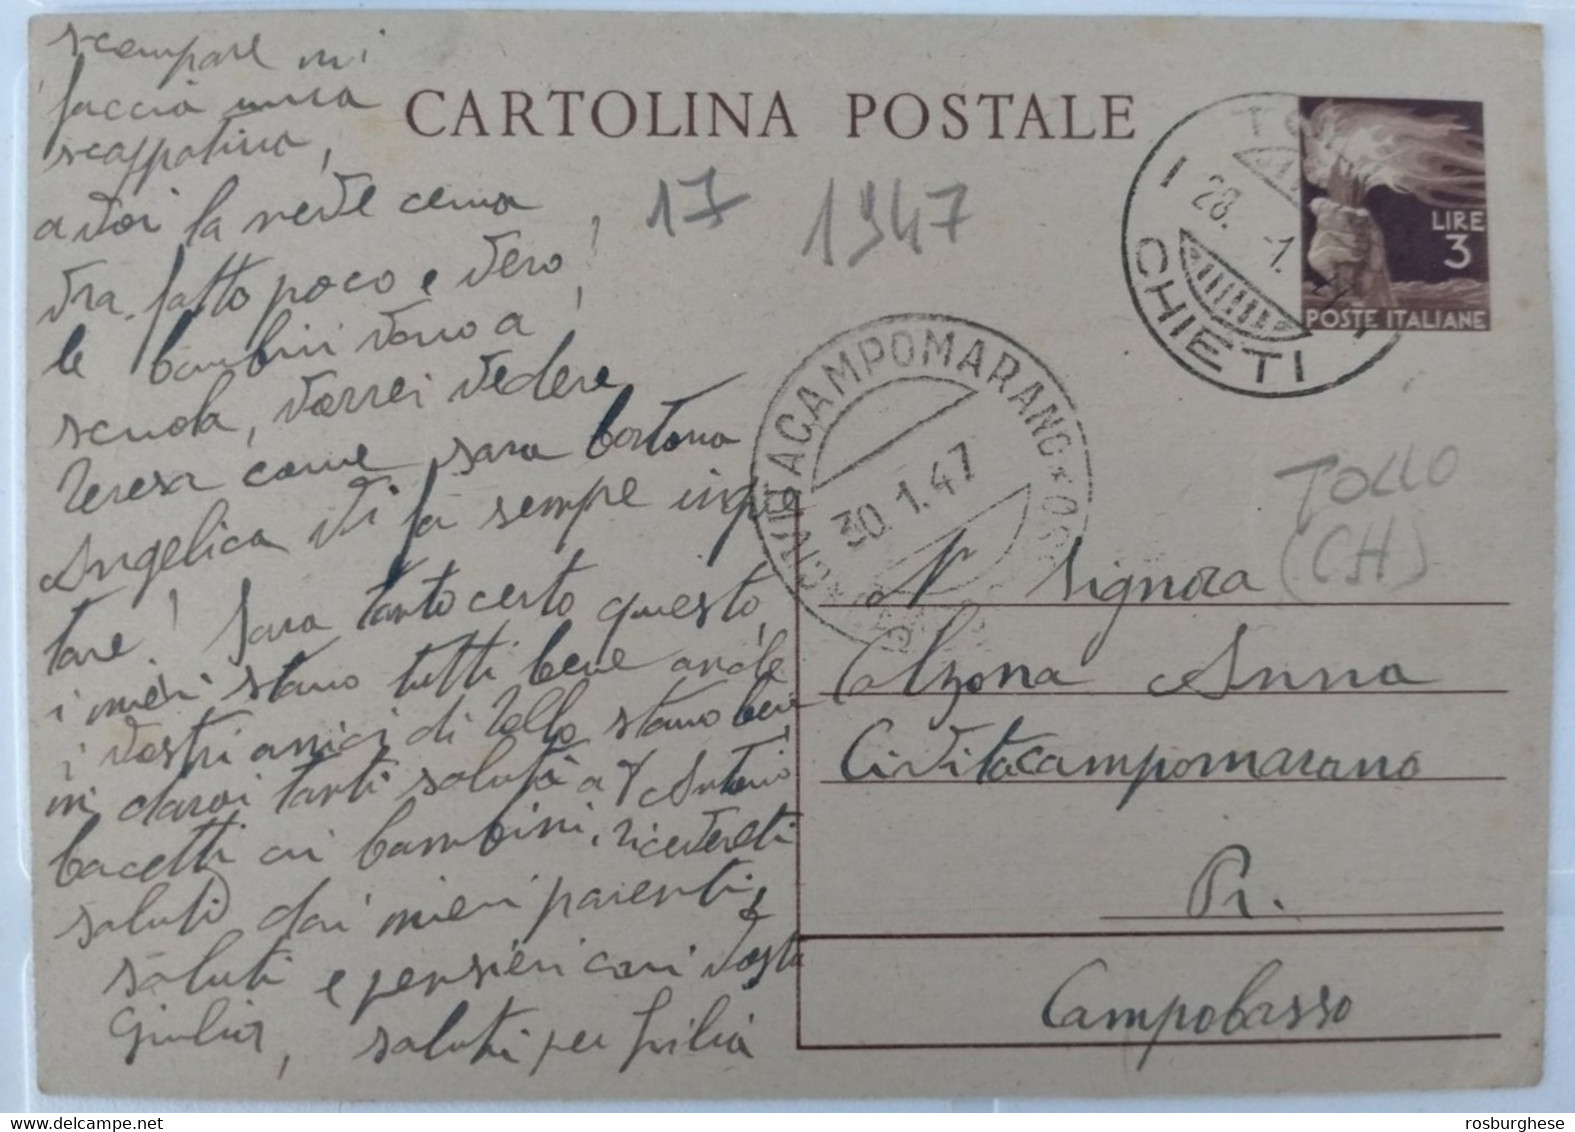 scampare mi
faccia una
scappatina,
a voi la neve cema
vra fatto poco e vero!
le bambini vanno a
scuola, vorrei vedere
Teresa come sara bontona
Angelica vi fa sempre inque
tare! Sara tanto certo questo,
i miei stano tutti bene anche
i vostri amici di Tollo stano bene
tanti saluti a Antonio
bacetti ai bambini, riceverete
saluti dai miei parenti
saluti e pensieri cari vosta
Giulia, saluti per
CARTOLINA POSTALE
17 1947
CHIETI
28. 1.
LIRE
3
POSTE ITALIANE
CIVITACAMPOMARANO
30.1.47
TOLLO
(CH)
Signora
Anna
Civitacampomarano
Pr.
Campobasso
rosburghese